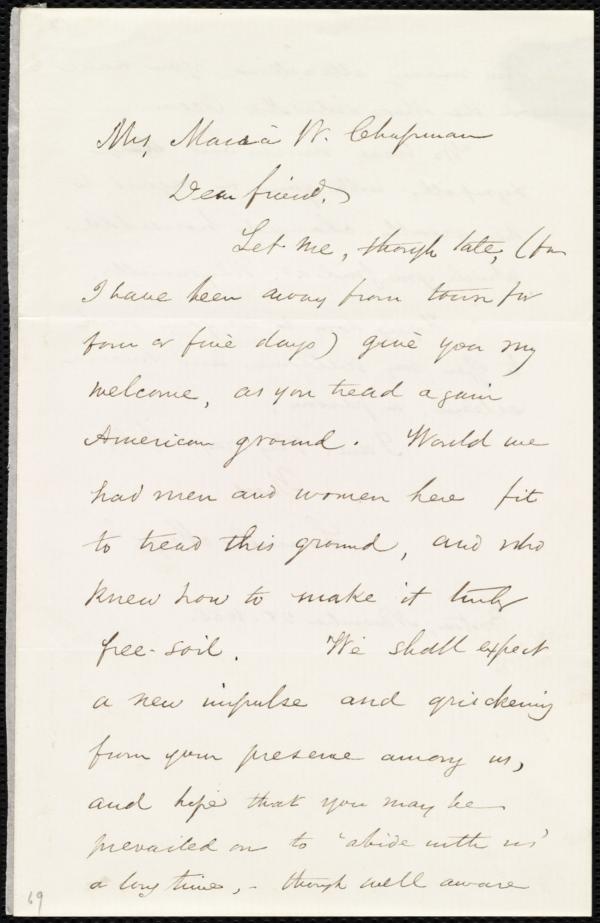 Mrs. Maria W. Chapman
Dear friend,
Let me, though late, (for
I have been away from town for
four or five days) give you my
welcome, as you tread again
American ground. Would we
had men and women here fit
to tread this ground, and who
knew how to make it truly
free-soil. We shall expect
a new impulse and quickening
from your presence among us,
and hope that you may be
prevailed on to "abide with us"
a long time, - though well aware
69